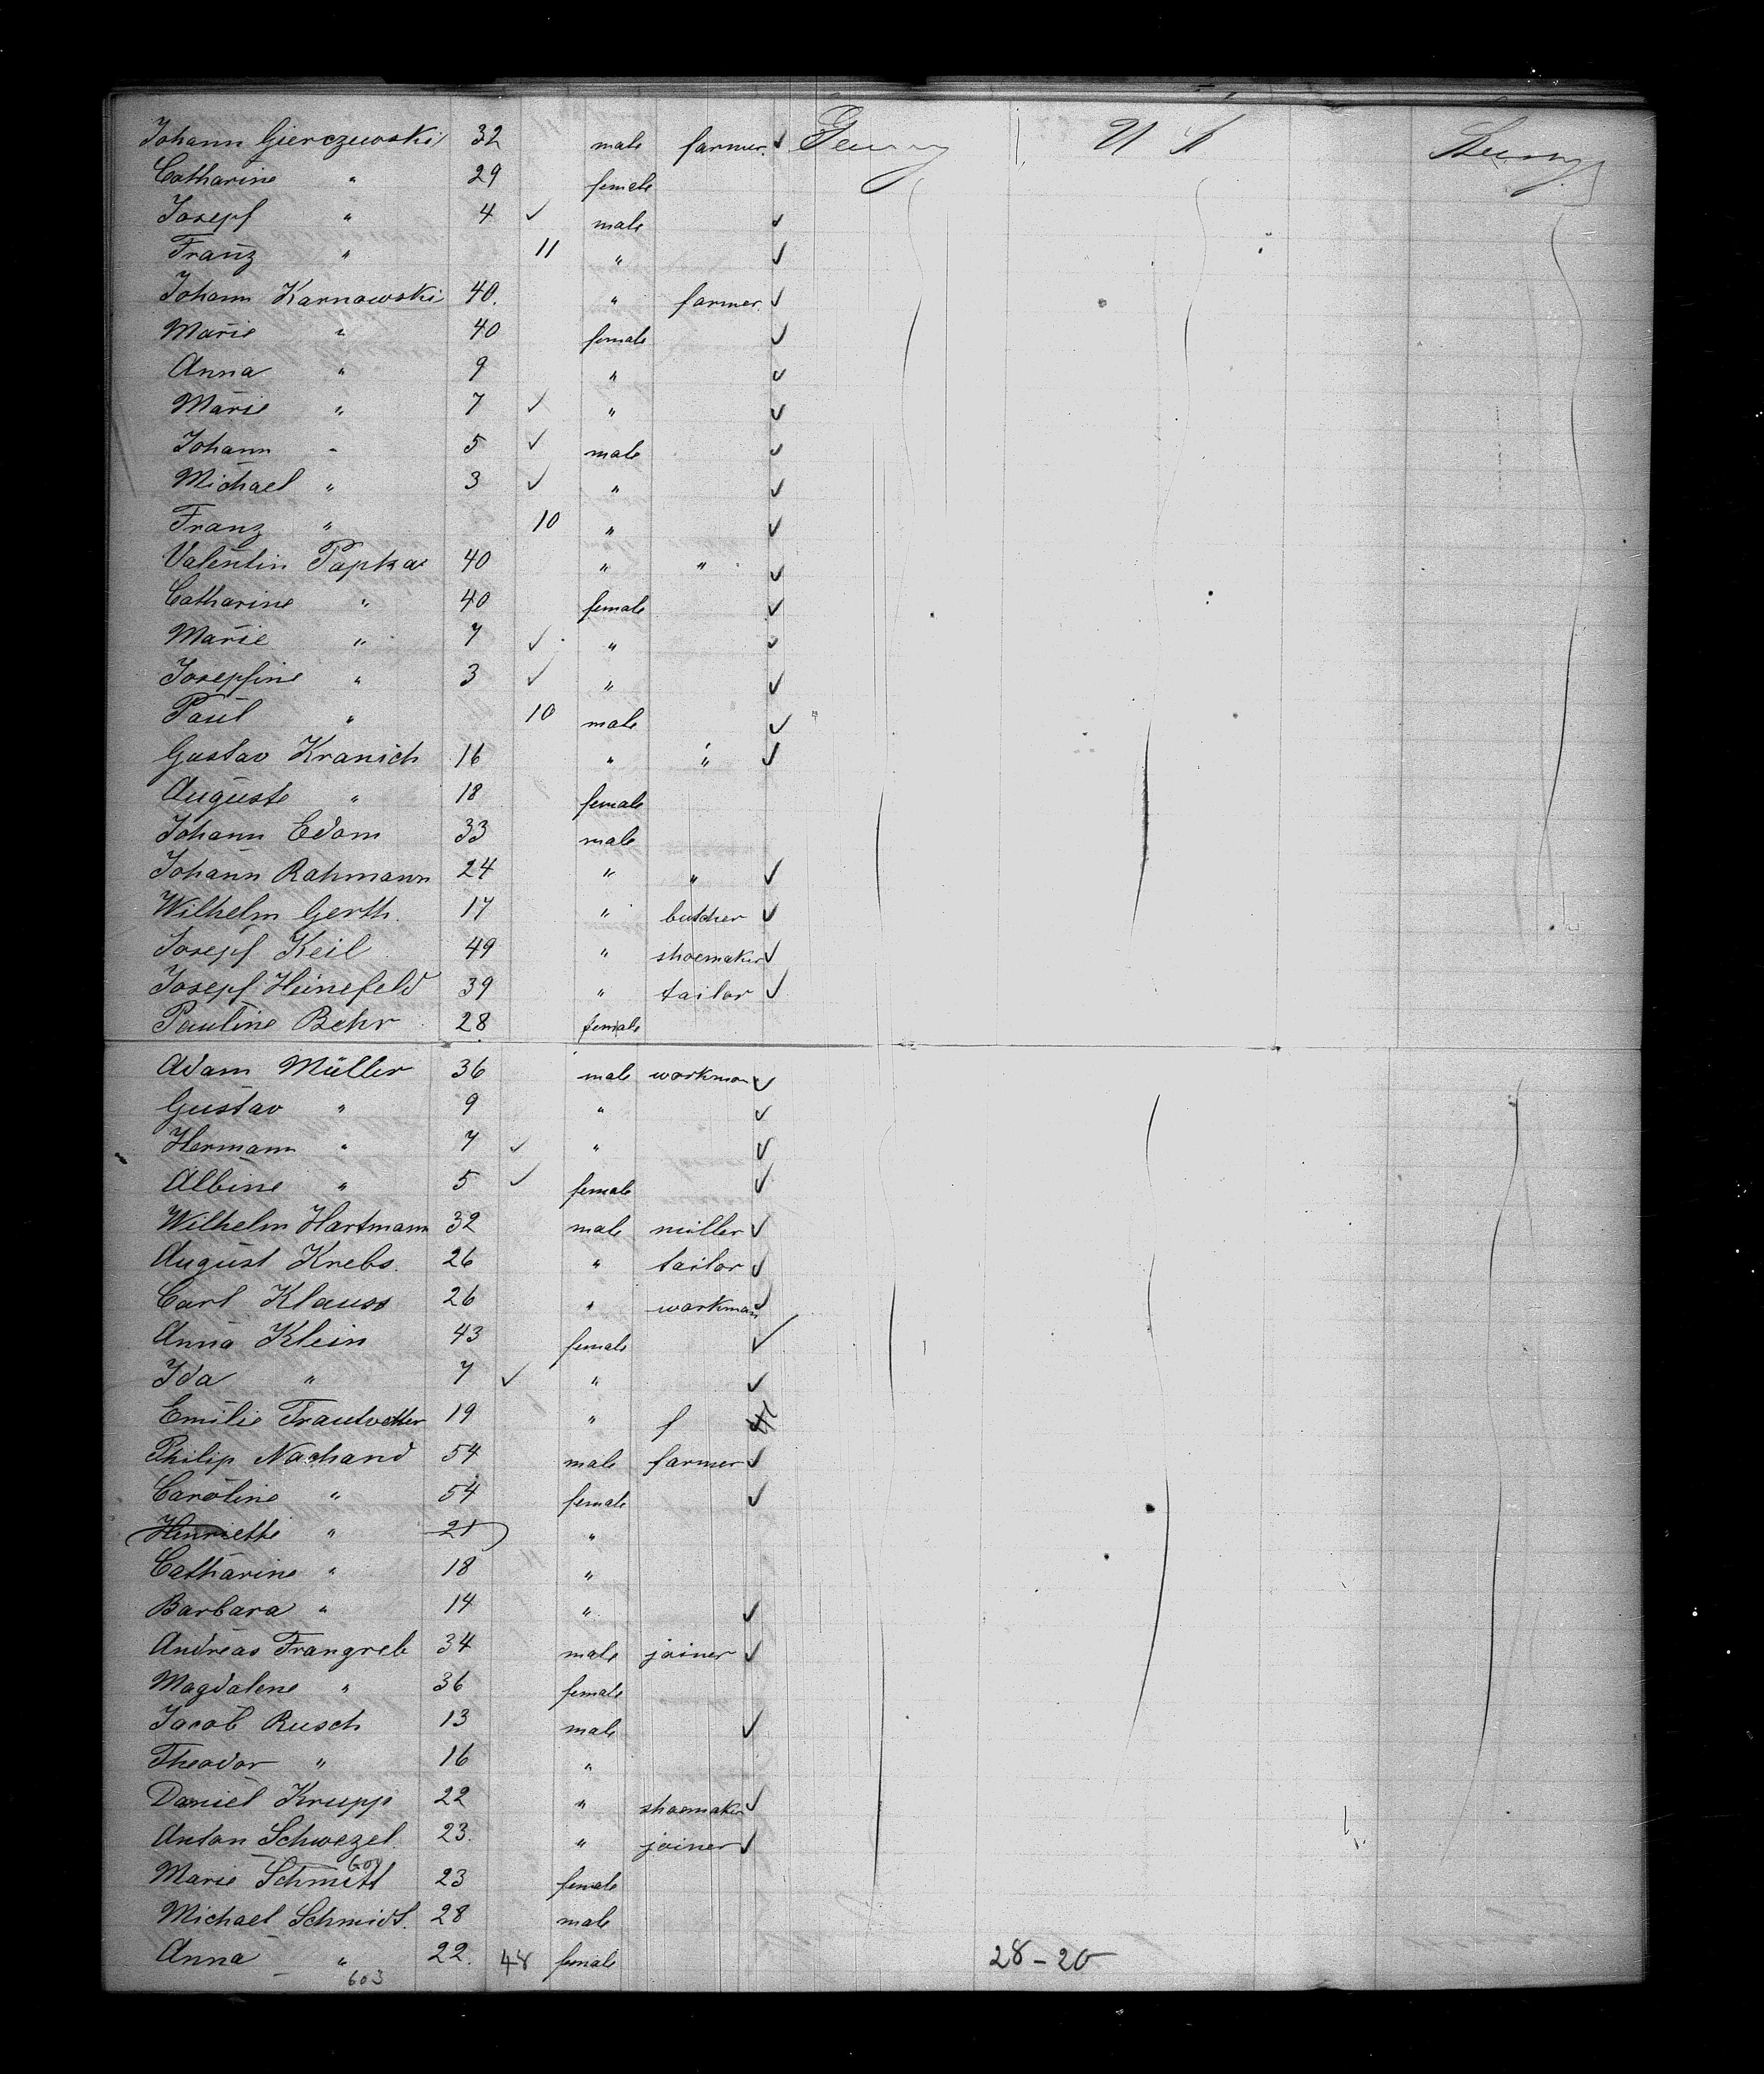 Johann Gierczewski 32 male farmer. Germy U S Germy
Catharine " 29 female
Josepf " 4 male
Franz " 11 "
Johann Karnowski 40. " farmer.
Marie " 40 female
Anna " 9 "
Marie " 7 "
Johann " 5 male
Michael " 3 "
Franz " 10 "
Valentin Papka 40 " "
Catharine " 40 female
Marie " 7 "
Josepfine " 3 "
Paul " 10 male
Gustav Kranich 16 " "
Auguste " 18 female
Johann Edom 33 male
Johann Rahmann 24 " "
Wilhelm Gerth. 17 " butcher
Josepf Keil 49 " shoemaker
Josepf Heinefeld 39 " tailor
Pauline Behr 28 female
Adam Müller 36 male workman
Gustav " 9 "
Hermann " 7 "
Albine " 5 female
Wilhelm Hartmann 32 male miller
August Krebs. 26 " tailor
Carl Klauss 26 " workman
Anna Klein 43 female
Ida " 7 "
Emilie Trautvetter 19 " f
Philip Nachand 54 male farmer
Caroline " 54 female
Henriette " 21 "
Catharine " 18 "
Barbara " 14 "
Andreas Frangreb 34 male joiner
Magdalene " 36 female
Jacob Rusch 13 male
Theodor " 16 "
Daniel Krupp 22 " shoemaker
Anton Schwezel. 23. " joiner
600
Marie Schmitt 23 female
Michael Schmidt. 28 male
Anna " 22. 48 female 28-20
603